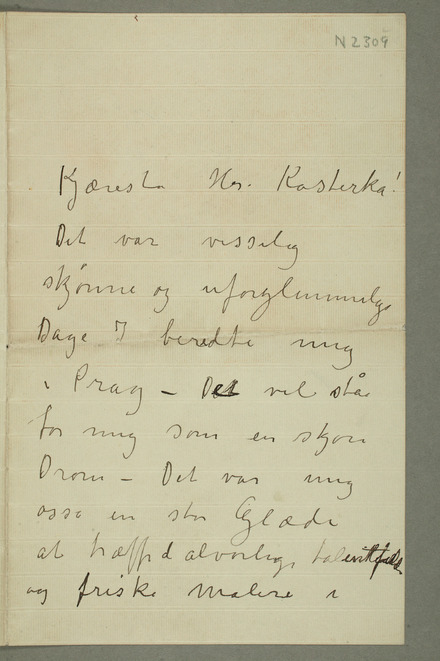 N 2309
Kjæreste Hr. Kosterka!
Det var visselig
skjønne og uforglemmelige
Dage I beredte mig
i Prag – Det vil stå
for mig som en skjøn
Drøm – Det var mig
også en stor Glæde
at træffe alvorlige, talentfulde
og friske Malere i